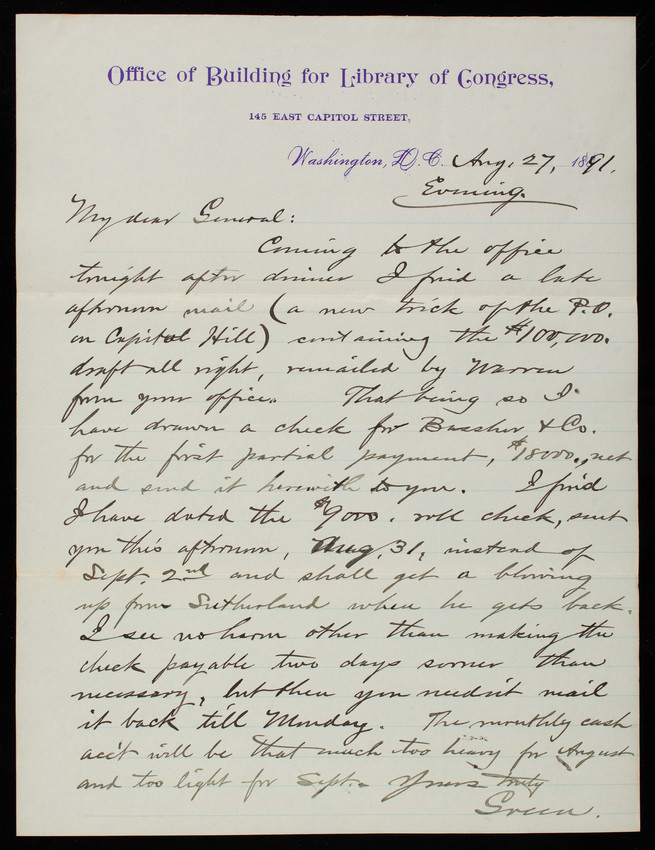 Office of Building for Library of Congress,
145 EAST CAPITOL STREET,
Washington, D.C. Aug. 27, 1891.
Evening.
My dear General:
Coming to the office
tonight after dinner I find a late
afternoon mail (a new trick of the P.O.
on Capitol Hill) containing the $100,000.
draft all right, remailed by Warren
from your office. That being so I
have drawn a check for Bassher & Co.
for the first partial payment, $18000., net
and send it herewith to you. I find
I have dated the $9000. roll check, sent
you this afternoon, Aug. 31, instead of
Sept. 2nd and shall get a blowing
up from Sutherland when he gets back.
I see no harm other than making the
check payable two days sooner than
necessary, but then you needn't mail
it back till Monday. The monthly cash
acc't will be that much too heavy for August
and too light for Sept. Yours truly
Green.